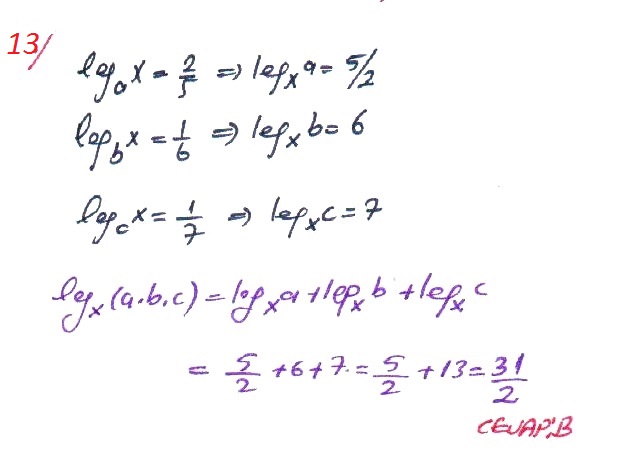 13/
logₐx = 2/5 ⇒ logₓa = 5/2
log_b x = 1/6 ⇒ logₓb = 6
log_c x = 1/7 ⇒ logₓc = 7
logₓ(a.b.c) = logₓa + logₓb + logₓc
= 5/2 + 6 + 7 = 5/2 + 13 = 31/2
CEVAP:B